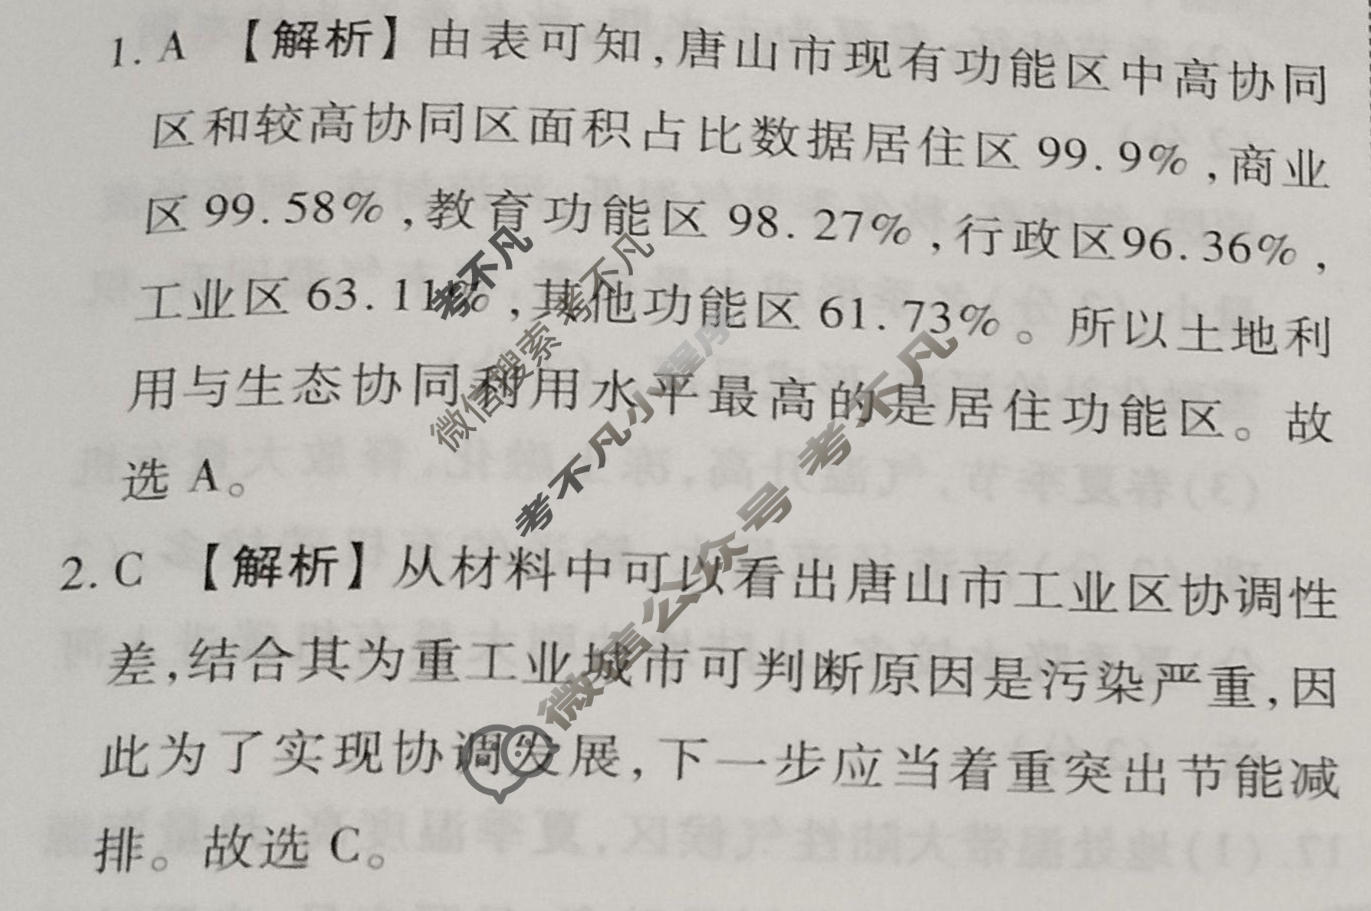 1. A 【解析】由表可知,唐山市现有功能区中高协同
区和较高协同区面积占比数据居住区 99.9%,商业
区 99.58%,教育功能区 98.27%,行政区96.36%,
工业区 63.11%,其他功能区 61.73%。所以土地利
用与生态协同利用水平最高的是居住功能区。故
选 A。
2. C 【解析】从材料中可以看出唐山市工业区协调性
差,结合其为重工业城市可判断原因是污染严重,因
此为了实现协调发展,下一步应当着重突出节能减
排。故选 C。
考不凡
微信搜索 考不凡
考不凡小程序
微信公众号 考不凡